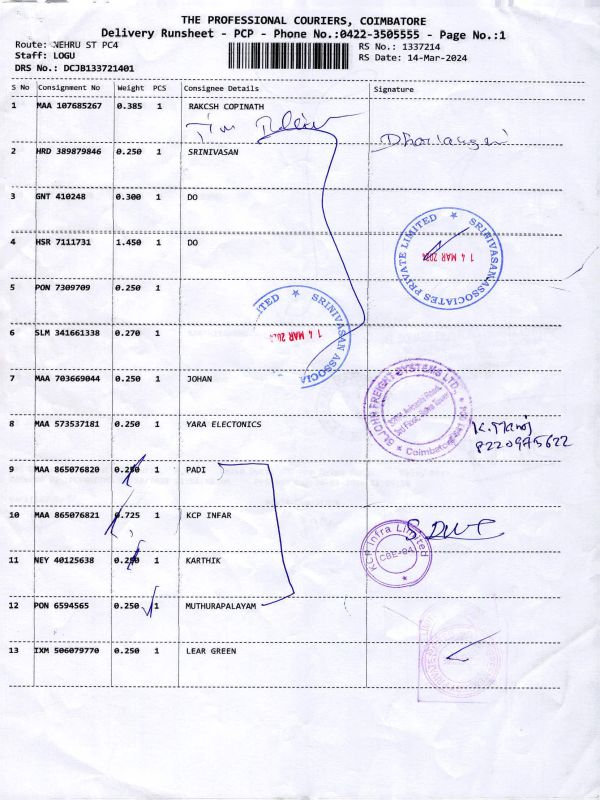 THE PROFESSIONAL COURIERS, COIMBATORE
Delivery Runsheet - PCP - Phone No.:0422-3505555 - Page No.:1
Route: NEHRU ST PC4
Staff: LOGU
DRS No.: DCJB133721401
RS No.: 1337214
RS Date: 14-Mar-2024
S No Consignment No Weight PCS Consignee Details Signature
1 MAA 107685267 0.385 1 RAKCSH COPINATH
2 HRD 389879846 0.250 1 SRINIVASAN
3 GNT 410248 0.300 1 DO
4 HSR 7111731 1.450 1 DO
SRINIVASAN ASSOCIATES PRIVATE LIMITED
14 MAR
5 PON 7309709 0.250 1
SRINIVASAN ASSOCIA
ITED
14 MAR
6 SLM 341661338 0.270 1
7 MAA 703669044 0.250 1 JOHAN
FREIGHT SYSTEMS LTD.
Coimbatore
8 MAA 573537181 0.250 1 YARA ELECTONICS
K. Manoj
8220975622
9 MAA 865076820 0.250 1 PADI
10 MAA 865076821 0.725 1 KCP INFAR
KCP Infra Limited
CBE-04
11 NEY 40125638 0.250 1 KARTHIK
12 PON 6594565 0.250 1 MUTHURAPALAYAM
13 IXM 506079770 0.250 1 LEAR GREEN